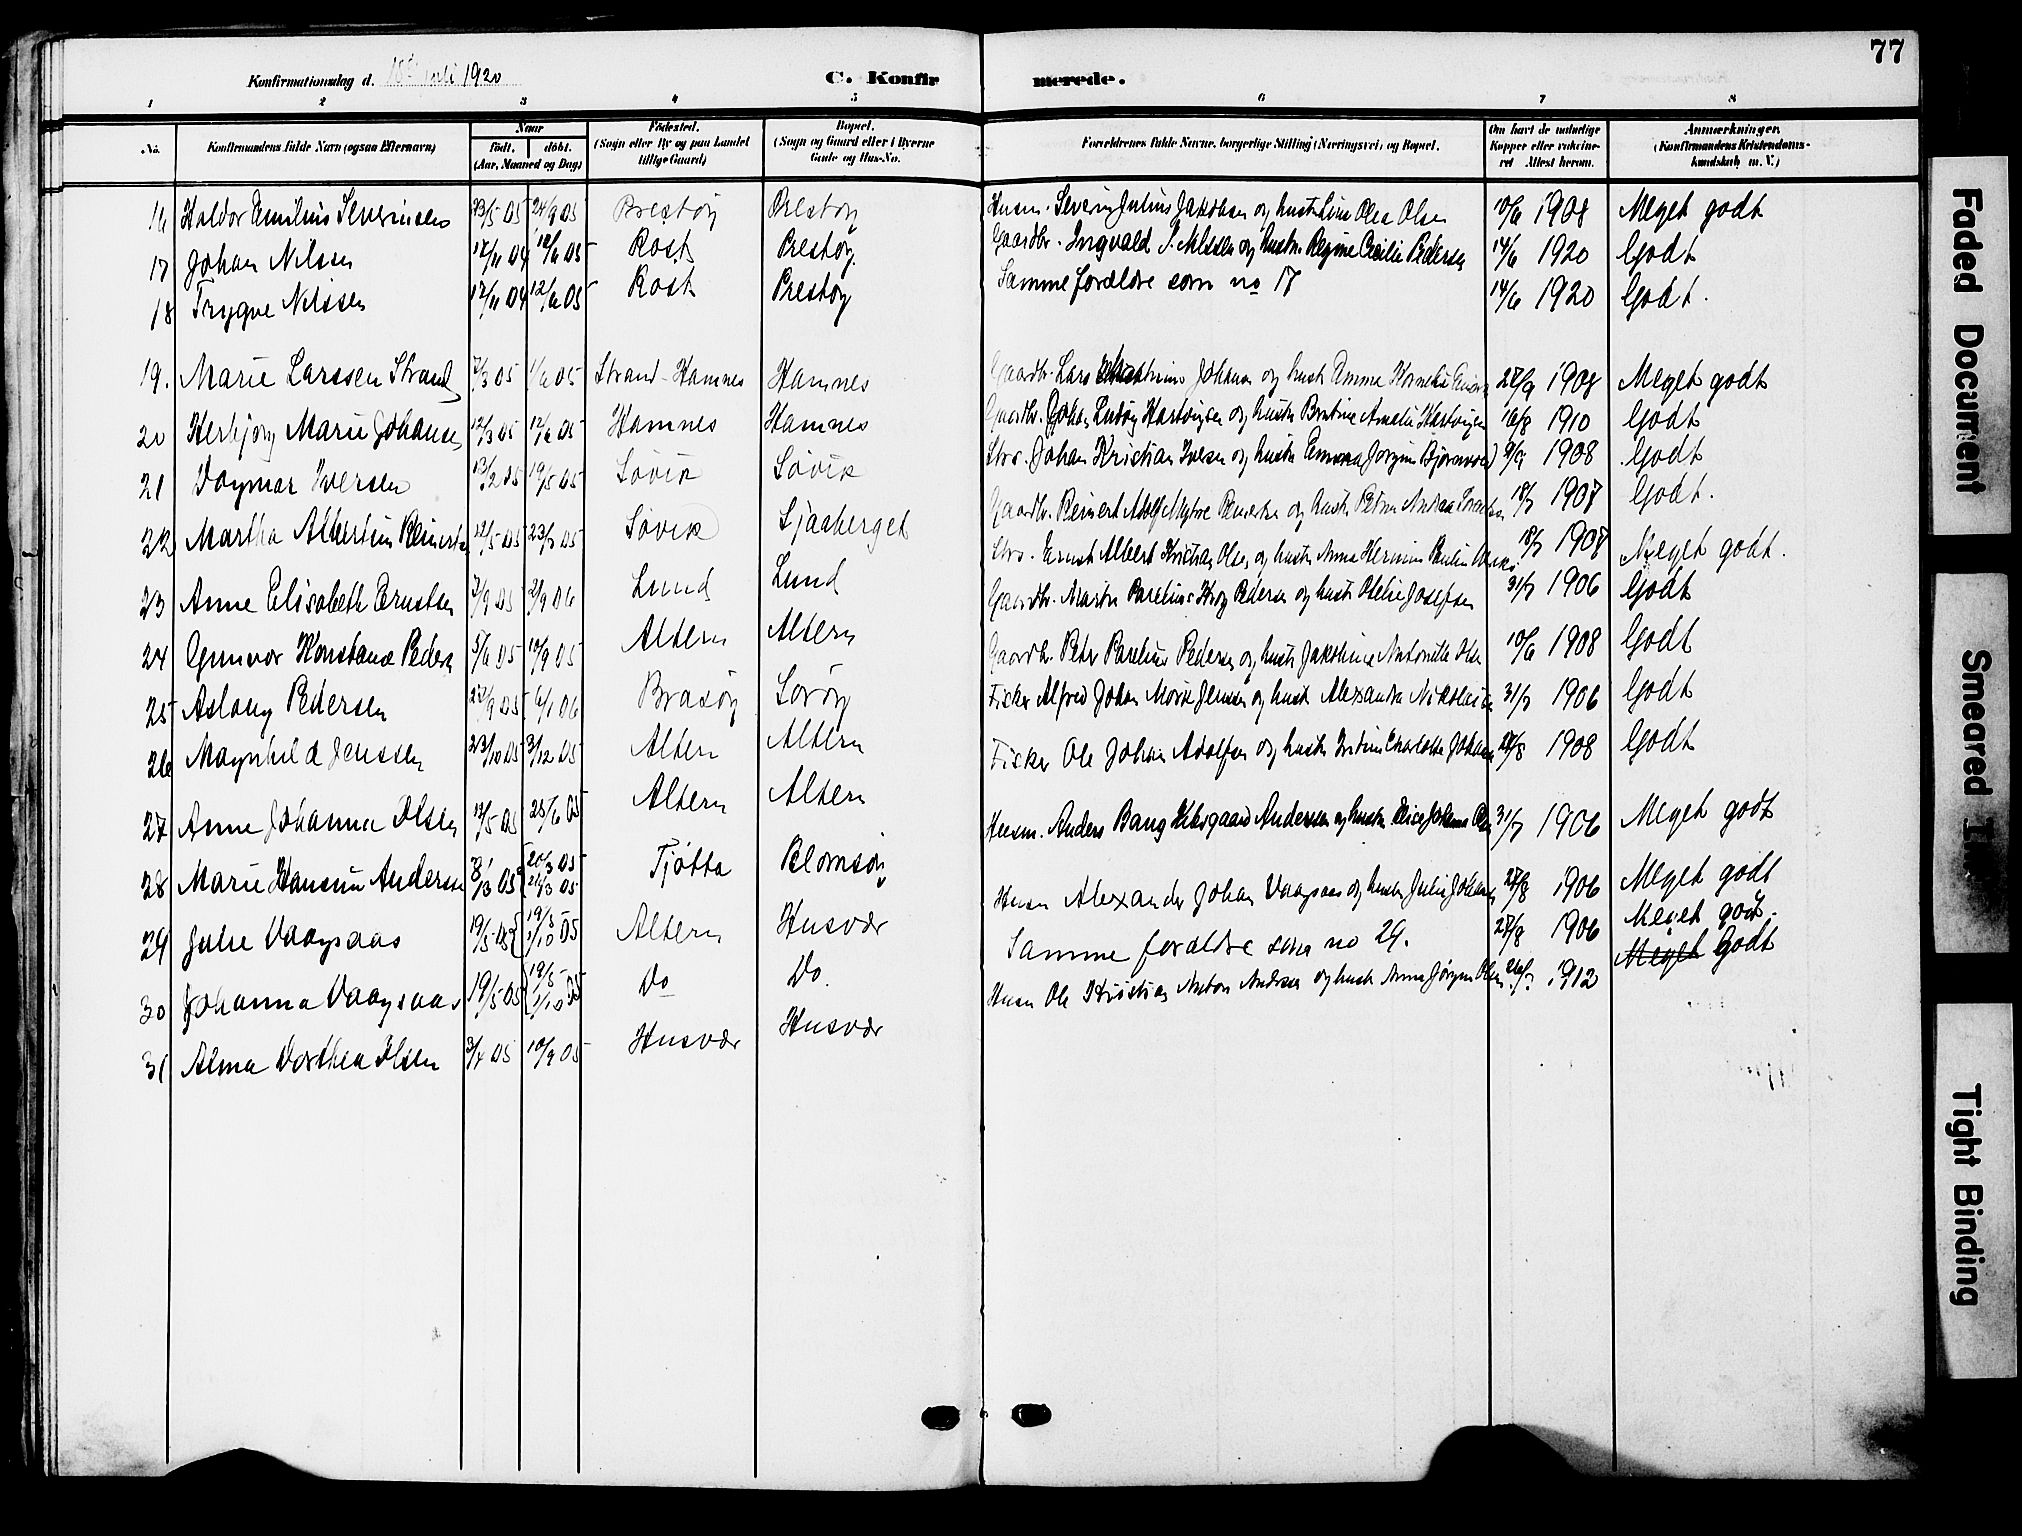 77
Konfirmationsdag d. 18de juli 1920
C. Konfirmerede.
1 2 3 4 5 6 7 8
No. Konfirmandens fulde Navn (ogsaa Efternavn) Naar født. døbt. (Aar, Maaned og Dag) Fødested. (Sogn eller By og paa Landet tillige Gaard) Bopæl. (Sogn og Gaard eller i Byerne Gade og Hus-No. Forældrenes fulde Navne, borgerlige Stilling (Næringsvei) og Bopæl. Om havt de naturlige Kopper eller vaccineret Attest herom. Anmærkninger. (Konfirmandens Kristendomskundskab m. V.)
16 Haldor Emilius Severinsen 23/5 05 24/9 05 Prestøy Prestøy Husm. Severin Julius Jakobsen og hustr Lina Olea Olsen 10/6 1908 Meget godt
17 Johan Nilsen 12/11 04 12/6 05 Røst Prestøy Gaardbr. Ingvald J. Nilssen og hustr. Regine Cecilie Pedersen 14/6 1920 Godt
18 Trygve Nilssen 12/11 04 12/6 05 Røst Prestøy Samme forældre som no 17 14/6 1920 Godt.
19. Marie Larssen Strand 7/3 05 1/6 05 Strand-Hamnes Hamnes Gaardbr. Lars Johansen og hustr Emma Kornelia 28/9 1908 Meget godt
20 Herbjørg Marie Johansen 12/3 05 12/6 05 Hamnes Hamnes Gaardbr. Johan Ludvig Hartvigsen og hustr Bertine Amalie Hartvigsen 16/8 1910 Godt
21 Dagmar Iversen 13/2 05 19/5 05 Søvik Søvik Strs. Johan Kristian Ivelsen og hustr Emma Jørgine Bjørnsvold 9/9 1908 Godt
22 Martha Albertine Reinertsen 12/5 05 23/7 05 Søvik Sjaaberget Gaardbr. Reinert Adolf og hustr Petra Andrea 18/7 1907 Godt.
23 Anne Elisabeth Ernstsen 3/9 05 2/9 06 Lund Lund Strs. Ernst Albert Kristian Olsen og hustr Anna Hermine Paulin 18/7 1907 Meget godt.
24 Gunvor Konstanse Peders 5/6 05 10/9 05 Altern Altern Gaardbr. Martin Parelius Krog Pedersen og hustr Otelie Josefsen 31/7 1906 Godt
25 Aslaug Pedersen 22/9 05 6/1 06 Brasøy Sørøy Gaardbr. Peter Parelius Pedersen og hustr Jakobine Antonette Olsen 10/6 1908 Godt
26 Magnhild Jenssen 23/10 05 3/12 05 Altern Altern Fisker Alfred Johan Morik Jenssen og hustr Alexandra Nikolaisen 31/7 1906 Godt
27 Anne Johanna Olsen 13/5 05 25/6 05 Altern Altern Fisker Ole Johan Adolfsen og hustr Kristine Charlotte Johansen 28/8 1908 Godt
28 Marie Hansine Andersen 8/3 05 20/3 05 26/3 05 Tjøtta Blomsøy Husm. Anders Bang Andersen og hustr Johanna 31/7 1906 Meget godt
29 Julie Vaagsaas 19/5 05 19/5 1/10 05 Altern Husvær Husm Alexander Johan Vaagsaas og hustr Julie Johans 27/8 1906 Meget godt
30 Johanna Vaagsaas 19/5 05 19/5 1/10 05 Do Do. Samme forældre som no 29. 27/8 1906 Meget godt.
31 Alma Dorthea Olsen 3/7 05 10/9 05 Husvær Husvær Husm Ole Kristian Anton Andersen og hustr Anna Jørgine Olsen 26/7 1912 Meget Godt
Faded Document
Smeared Ink
Tight Binding